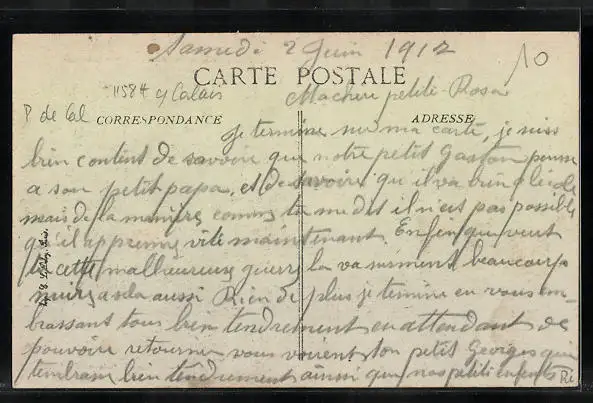 Samedi 2 Juin 1917
10
CARTE POSTALE
11584 c/ Calais
P de Cal
Machere petite Rosa
CORRESPONDANCE
ADRESSE
Je termine sur ma carte, je suis
bien content de savoire que notre petit Gaston pense
a son petit papa, et de savoire qu'il va bien a l'école
mais de la manière comme tu me dit il n'est pas possible
qu'il apprenne vite maintenant. Enfen que veut
tu cette malheureuse guerre la va surment beaucoup
nuire a sela aussi Rien de plus je termine en vous em-
brassant tous bien tendrement en attendant de
pouvoire retourner vous voir ton petit Georges qui
t'embrasse bien tendrement ainsi que nos petits enfents
Ri